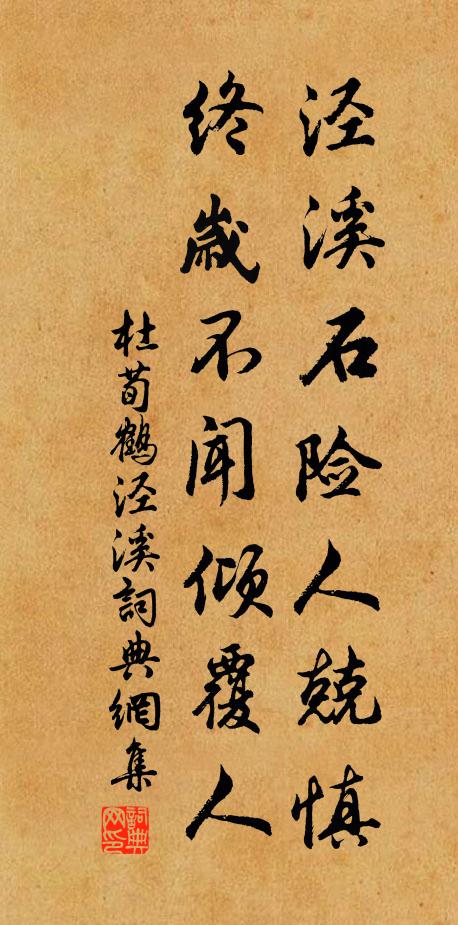 泾溪石险人兢慎
终歳不闻倾覆人
杜荀鶴泾溪詞典網集
詞典网印